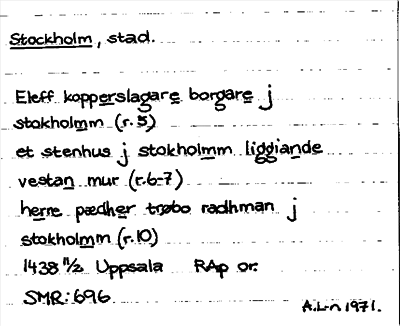 Stockholm, stad.
Eleff kopperslagare borgare j
stokholmm (r.5)
et stenhus j stokholmm liggiande
vestan mur (r.6-7)
herre pædher trøbo radhman j
stokholmm (r.10)
1438 11/2 Uppsala RAp or.
SMR:696
A.L-n 1971.